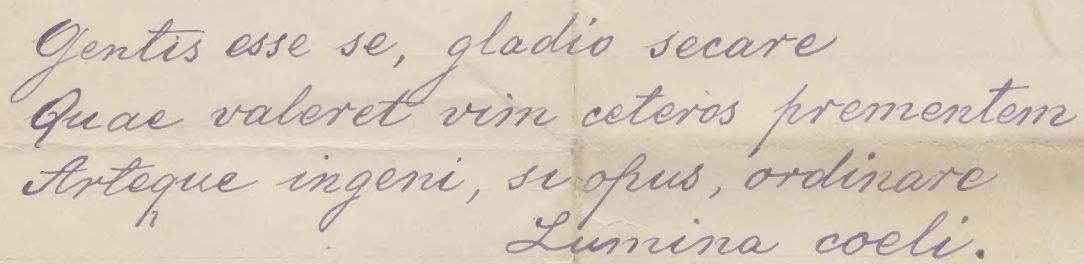 Gentis esse se, gladio secare
Quae valeret vim ceteros prementem
Arteque ingeni, si opus, ordinare
Lumina coeli.